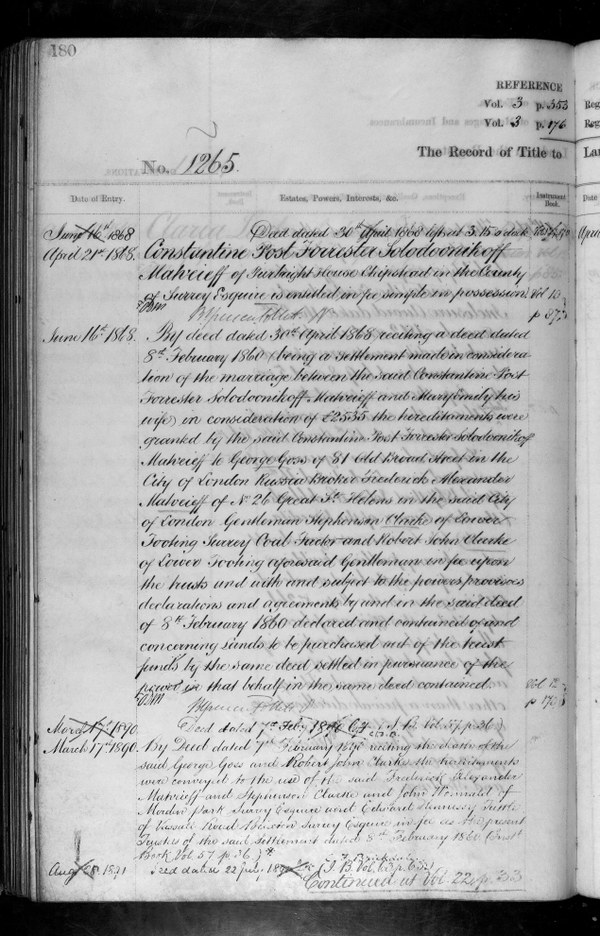 180
REFERENCE
Vol. 3 p. 353
Vol. 3 p. 176
No. 1265.
The Record of Title to
Date of Entry.
Estates, Powers, Interests, &c.
Instrument Book.
June 16th 1868
Deed dated 30th April 1868
April 21st 1868.
Constantine Post Forrester Solodoonikoff
Matveieff of Fairlight House Chipstead in the County
of Surrey Esquire is entitled in fee simple in possession
Vol 13
June 16th 1868.
By deed dated 30th April 1868 reciting a deed dated
8th February 1860 (being a settlement made in considera
tion of the marriage between the said Constantine Post
Forrester Solodoonikoff Matveieff and Mary Emily his
wife) in consideration of £2535 the hereditaments were
granted by the said Constantine Post Forrester Solodoonikoff
Matveieff to George Goss of 81 Old Broad Street in the
City of London Russia Broker Frederick Alexander
Matveieff of No 26 Great St Helens in the said City
of London Gentleman Stephenson Clarke of Lower
Tooting Surrey Coal Factor and Robert John Clarke
of Lower Tooting aforesaid Gentleman in fee upon
the trusts and with and subject to the powers provisoes
declarations and agreements by and in the said deed
of 8th February 1860 declared and contained of and
concerning lands to be purchased out of the trust
funds by the same deed settled in pursuance of the
power in that behalf in the same deed contained.
Vol 12
March 17th 1890.
Deed dated 7th Feby 1890
March 17th 1890.
By Deed dated 7th February 1890 reciting the death of the
said George Goss and Robert John Clarke the hereditaments
were conveyed to the use of the said Frederick Alexander
Matveieff and Stephenson Clarke and John Wormald of
Morden Park Surrey Esquire and Edward
of Vassall Road Brixton Surrey Esquire in fee as the present
Trustees of the said Settlement dated 8th February 1860 (Inst
Book Vol 57 p 36)
Aug 1891
Deed dated 22 July
Continued at Vol. 22 p. 33